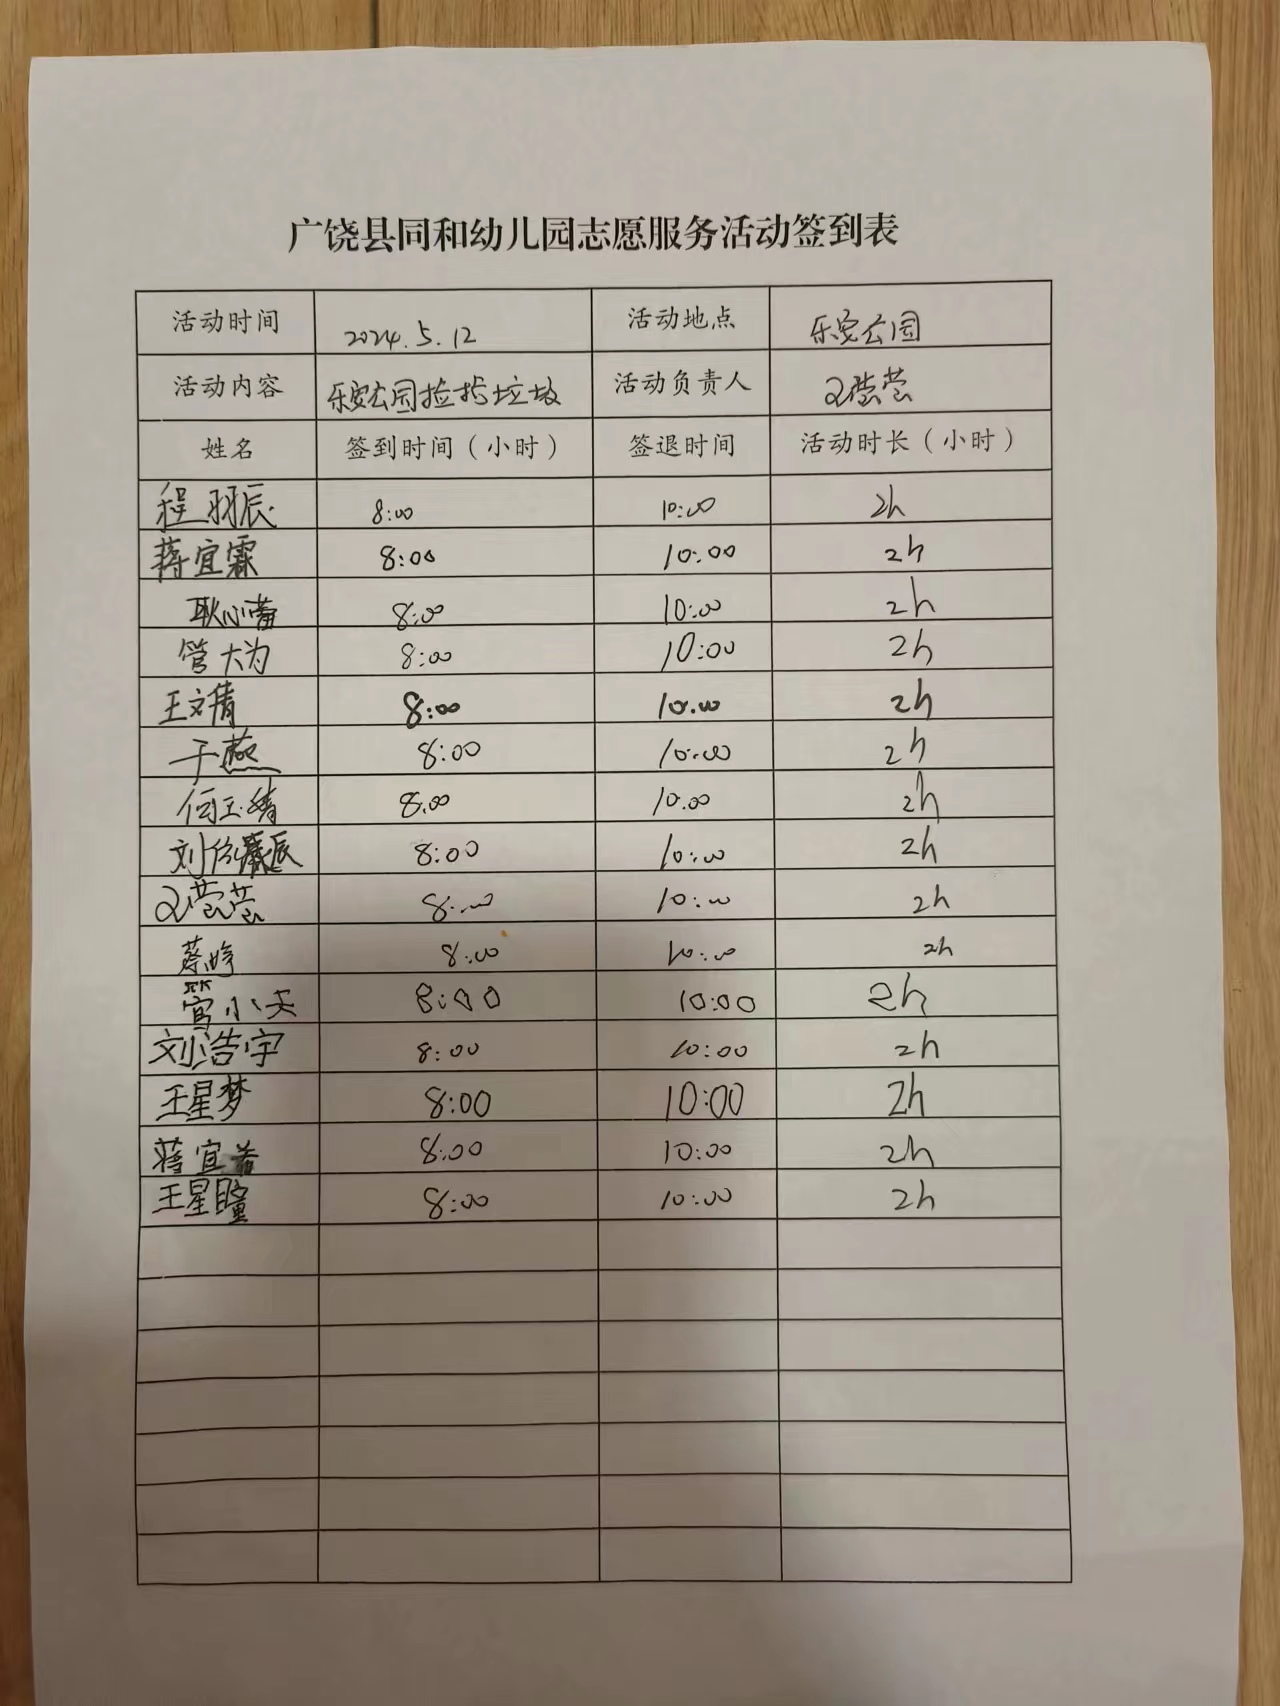 广饶县同和幼儿园志愿服务活动签到表
活动时间 2024.5.12 活动地点 乐安公园
活动内容 乐安公园捡拾垃圾 活动负责人 莹莹
姓名 签到时间（小时） 签退时间 活动时长（小时）
程羽辰 8:00 10:00 2h
蒋宜霖 8:00 10:00 2h
耿心蕾 8:00 10:00 2h
管大为 8:00 10:00 2h
王文倩 8:00 10:00 2h
于燕 8:00 10:00 2h
8:00 10:00 2h
刘 辰 8:00 10:00 2h
莹莹 8:00 10:00 2h
蔡婷 8:00 10:00 2h
管小天 8:00 10:00 2h
刘浩宇 8:00 10:00 2h
王星梦 8:00 10:00 2h
蒋宜 8:00 10:00 2h
王星瞳 8:00 10:00 2h